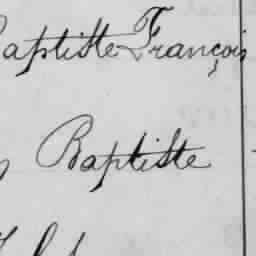 Baptiste François
Baptiste